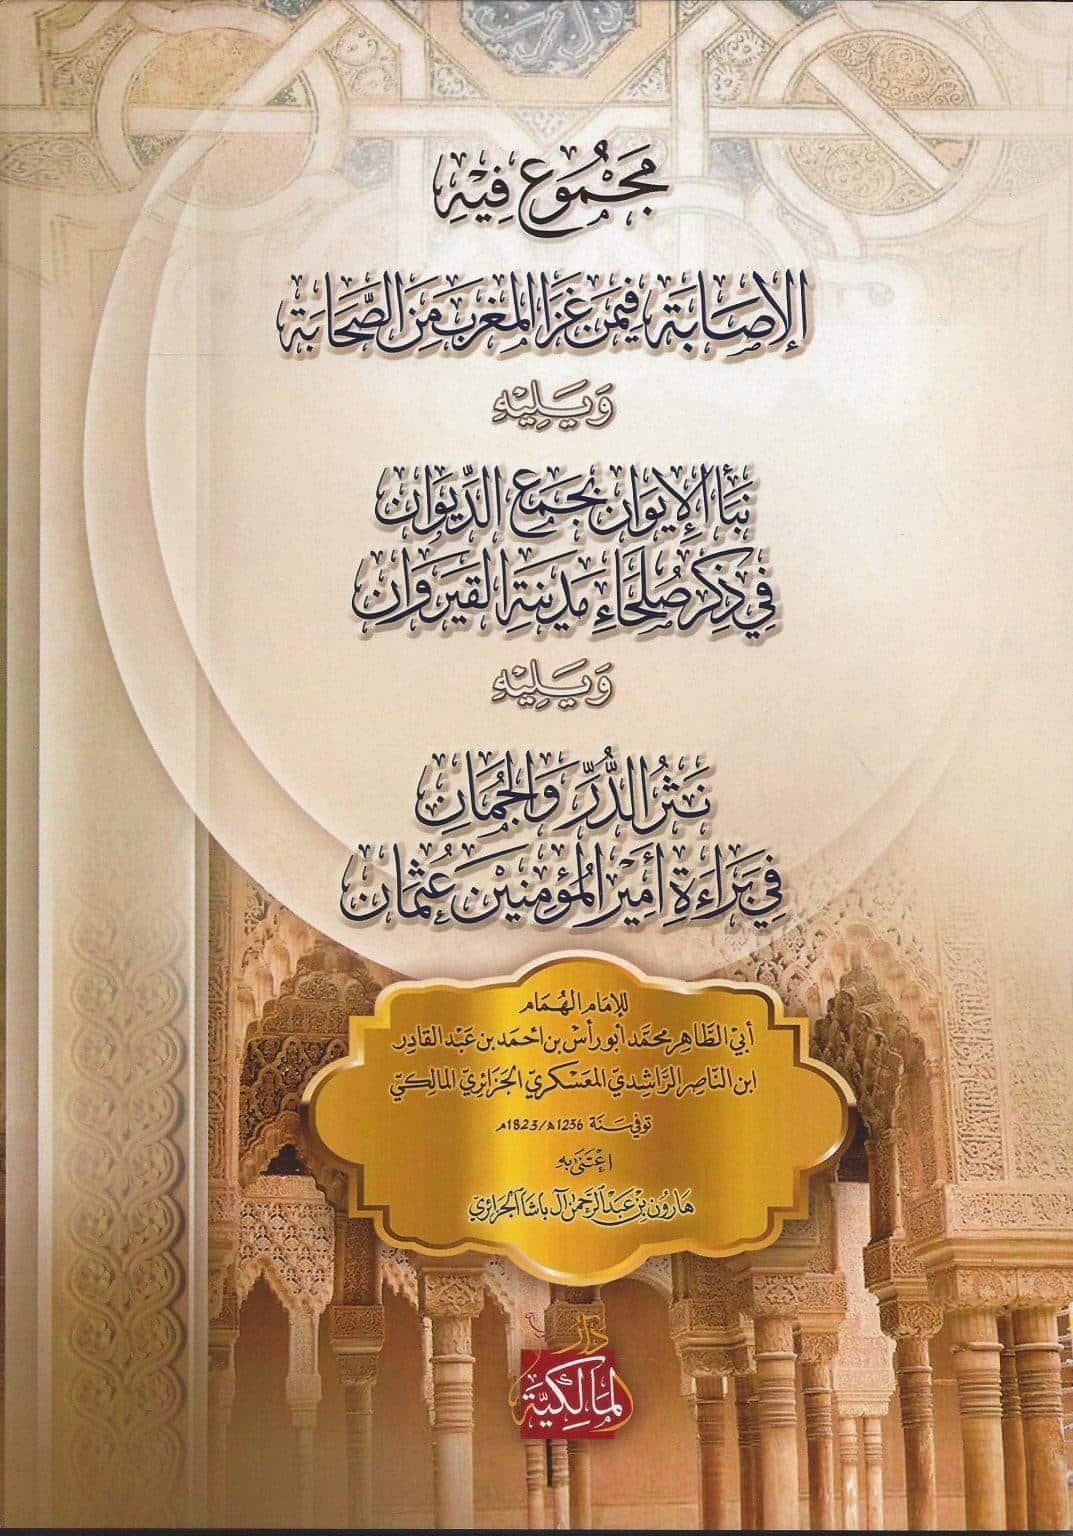 مَجْمُوع فِيْهِ
الإصَابَة فِيمَن غَزَا المَغرِبَ مِنَ الصَّحَابَة
وَيَلِيْهِ
نَبَأ الإيوَان بجَمعِ الدِّيوَان
فِي ذِكرِ صُلَحَاءِ مَدِينَةِ القَيرَوَان
وَيَلِيْهِ
نَثرُ الدُّرِّ وَالجُمَانِ
فِي بَرَاءَةِ أَمِيْرِ المُؤمِنِيْنَ عُثمَان
للإمَام الهُمَام
أبي الطَّاهِر محمَّد أبو رأسْ بن أحمَد بن عَبد القَادِر
ابن النَّاصِر الرَاشدِيّ المعَسكَرِيّ الجَزَائِرِيّ المَالِكيّ
توفي سَنَة 1236هـ/1823م
اعْتَنَى بِه
هَارُون بْن عَبْد الرَّحمٰن آل بَاشَا الجَزَائِرِيّ
دَار
المَالِكِيَّة